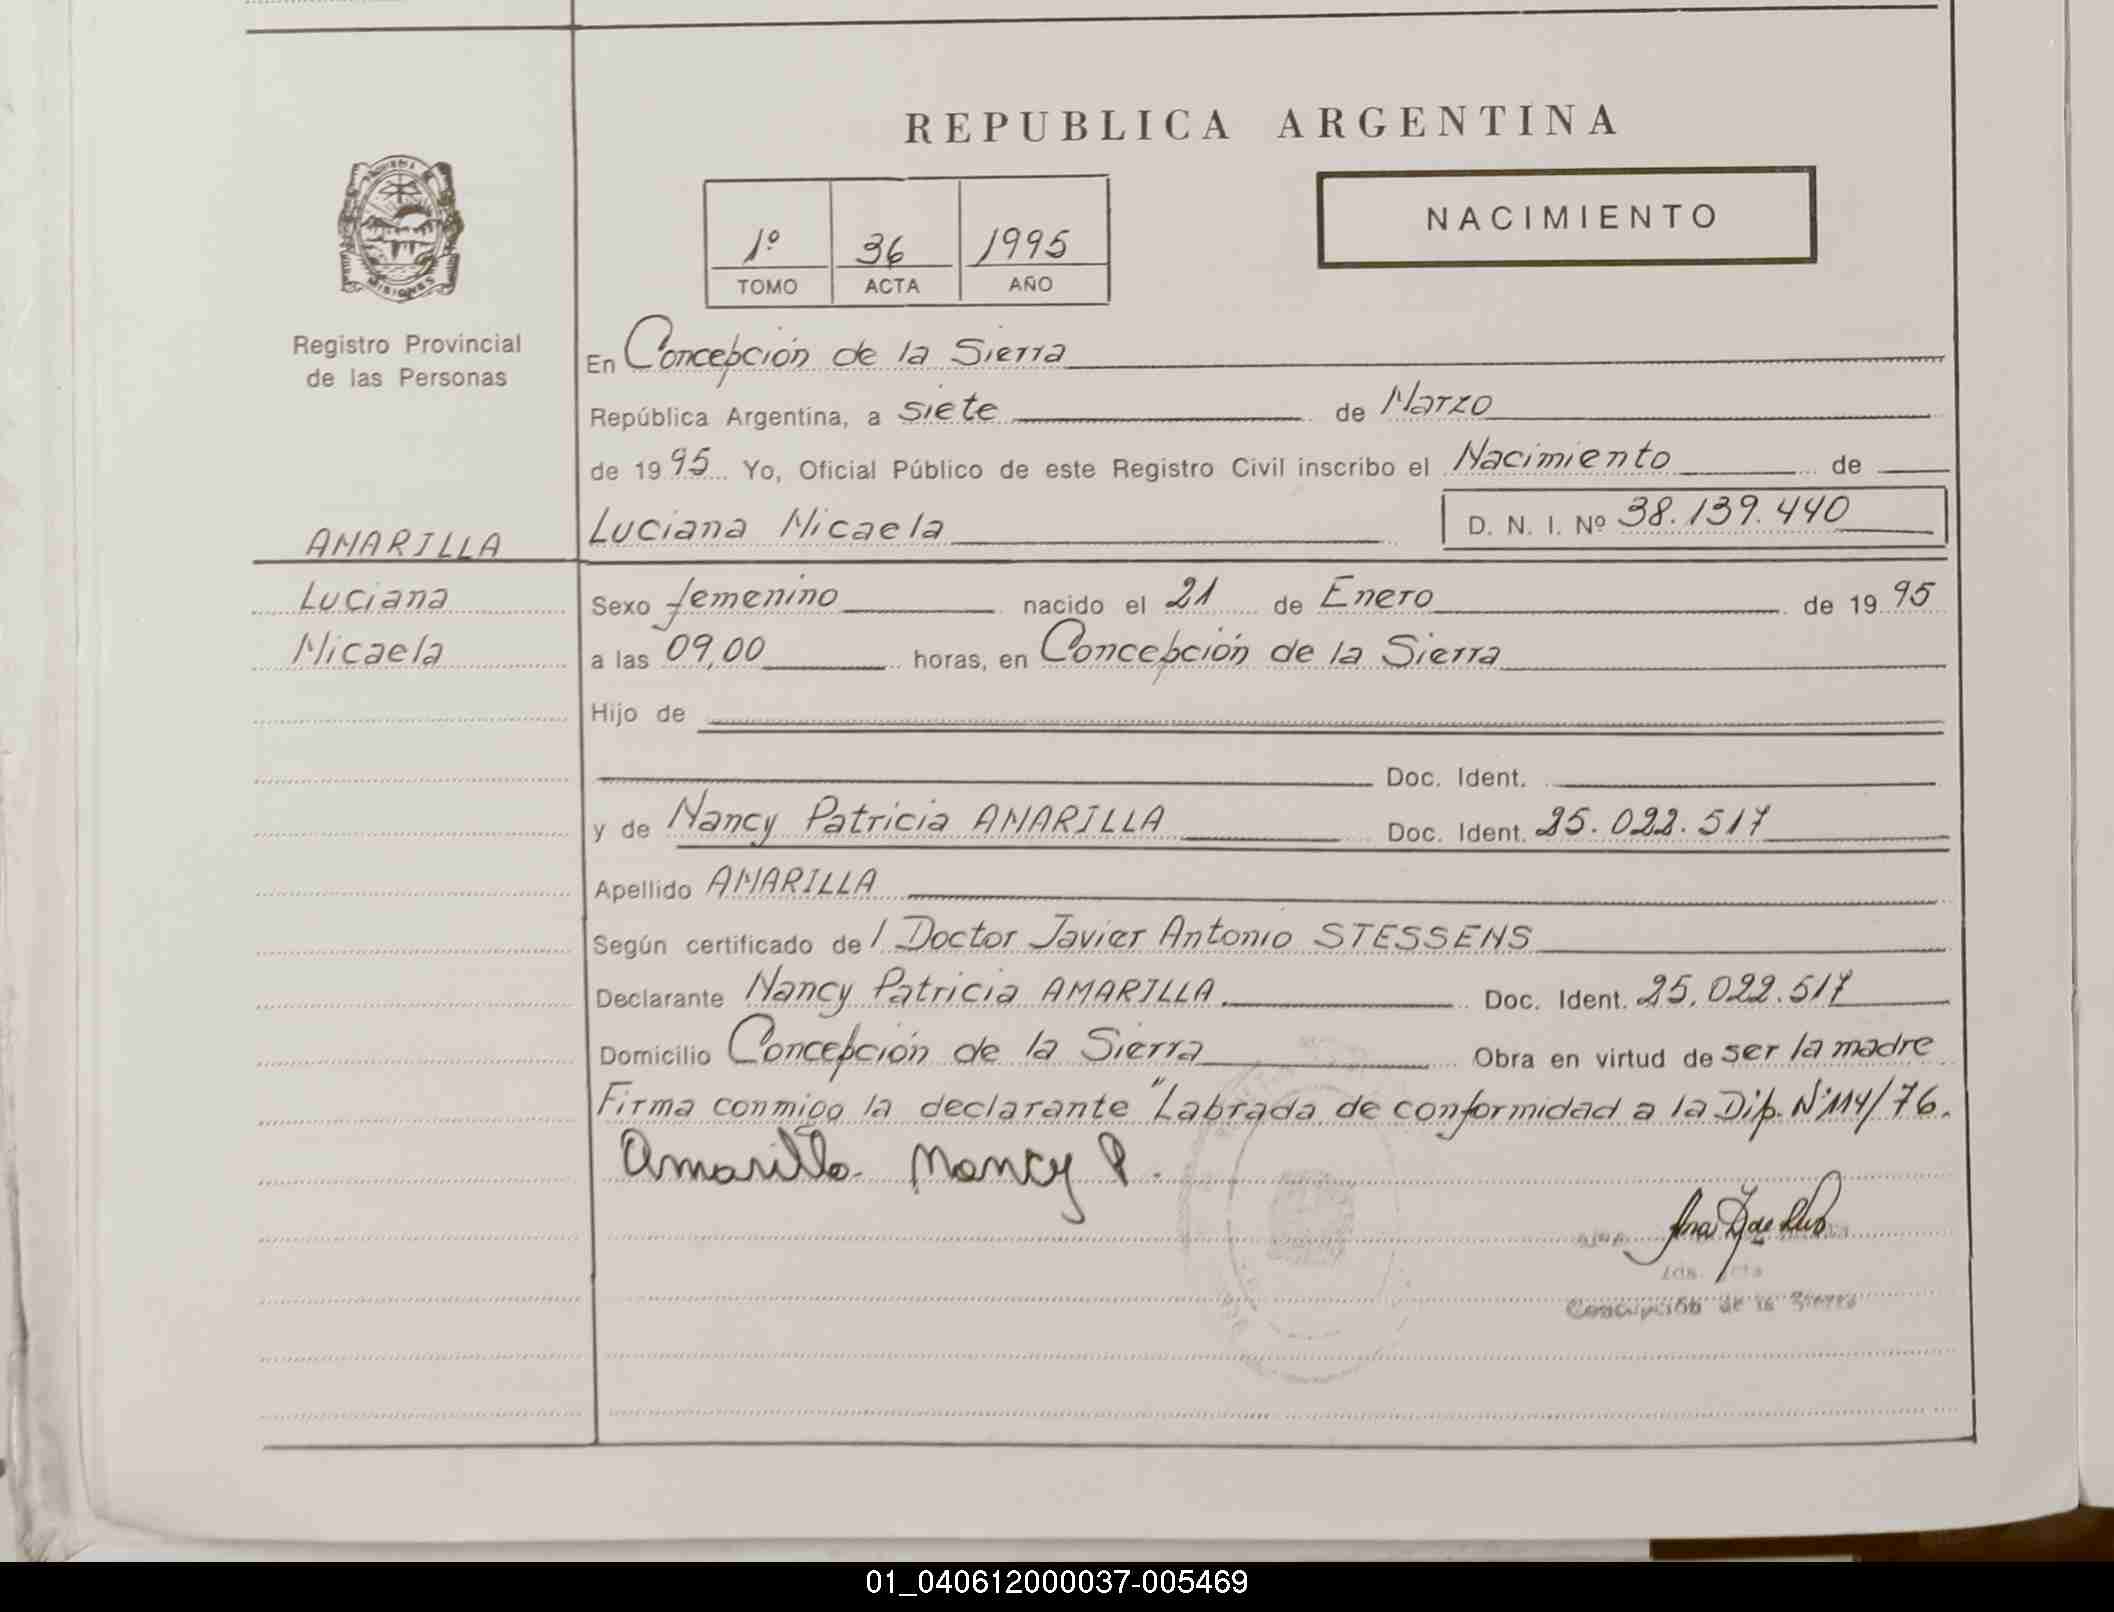 REPUBLICA ARGENTINA
NACIMIENTO
1º 36 1995
TOMO ACTA AÑO
MISIONES
Registro Provincial
de las Personas
AMARILLA
Luciana
Micaela
En Concepción de la Sierra
República Argentina, a siete de Marzo
de 1995 Yo, Oficial Público de este Registro Civil inscribo el Nacimiento de
Luciana Micaela D. N. I. Nº 38.139.440
Sexo femenino nacido el 21 de Enero de 1995
a las 09,00 horas, en Concepción de la Sierra
Hijo de
Doc. Ident.
y de Nancy Patricia AMARILLA Doc. Ident. 25.022.517
Apellido AMARILLA
Según certificado de l Doctor Javier Antonio STESSENS
Declarante Nancy Patricia AMARILLA Doc. Ident. 25.022.517
Domicilio Concepción de la Sierra Obra en virtud de ser la madre
Firma conmigo la declarante "Labrada de conformidad a la Dip. Nº 114/76.
Amarilla Nancy P.
Concepción de la Sierra
01_040612000037-005469